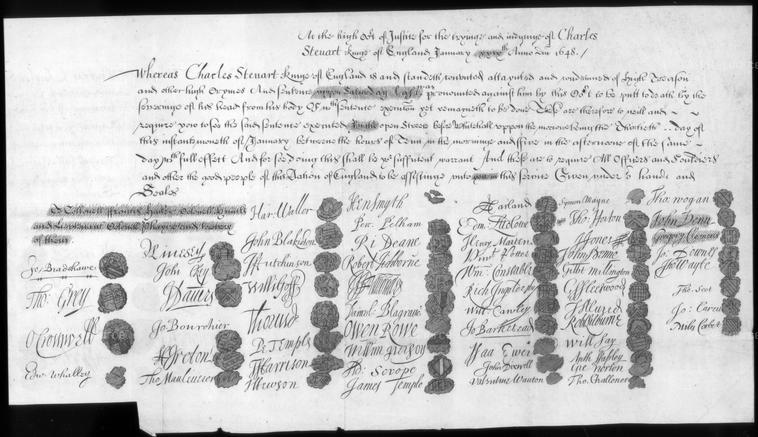 At the high Cort of Justice for the tryinge and iudginge of Charles
Steuart Kinge of England January xxixth Anno Dni 1648./
Whereas Charles Steuart Kinge of England is and standeth convicted attaynted and condemned of High Treason
and other high Crymes And sentence uppon Saturday last was pronounced against him by this Cort to be putt to death by the
severinge of his head from his body Of wch sentence execucon yet remayneth to be done These are therefore to will and
require you to see the said sentence executed In the open Streete before Whitehall uppon the morrowe being the Thirtieth day of
this instante moneth of January betweene the houres of Tenn in the morninge and Five in the afternoone of the same
day wth full effect And for soe doing this shall be yor sufficient warrant And these are to require All Officers and Souldiers
and other the good people of this Nation of England to be assistinge unto you in this service Given under or hands and
Seales
To Collonell Francis Hacker Colonell Huncks
and Lieutenant Colonel Phayre and to every
of them
Jo Bradshawe
Tho Grey
O Cromwell
Edw Whalley
M Livesey
John Okey
J Danvers
Jo Bourchier
H Ireton
Tho Mauleverer
Har Waller
John Blakiston
J Hutchinson
Willi Goff
Tho Pride
P Temple
T Harrison
J Hewson
Hen Smyth
Per Pelham
Ri Deane
Robert Tichborne
H Edwardes
Daniel Blagrave
Owen Rowe
William Purefoy
Ad Scrope
James Temple
A Garland
Edm Ludlowe
Henry Marten
Vinct Potter
Wm Constable
Rich Ingoldesby
Will Cawley
Jo Barkstead
Isaa Ewer
John Dixwell
Valentine Wauton
Symon Mayne
Tho Horton
J Jones
John Moore
Gilbt Millington
G Fleetwood
J Alured
Rob Lilburne
Will Say
Anth Stapley
Gre Norton
Tho Challoner
Tho Wogan
John Venn
Gregory Clement
Jo Downes
Tho Wayte
Tho Scot
Jo Carew
Miles Corbet